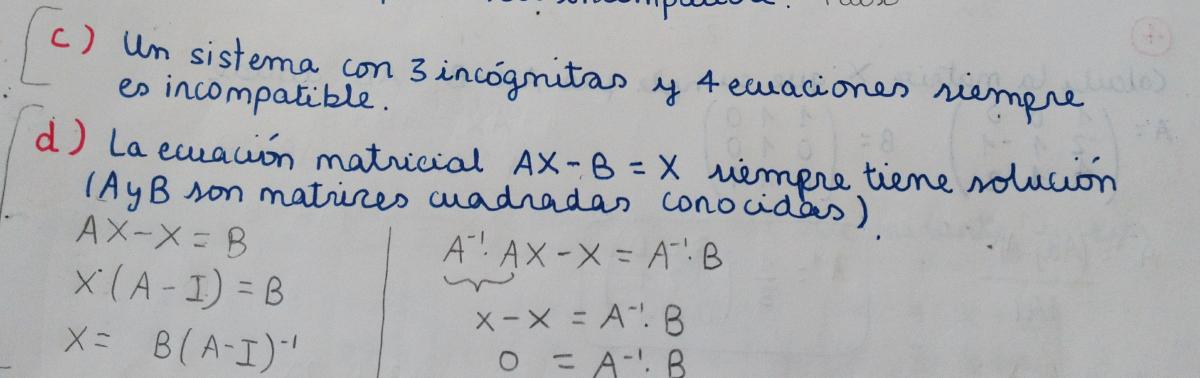 c) Un sistema con 3 incógnitas y 4 ecuaciones siempre
es incompatible.
d) La ecuación matricial AX - B = X siempre tiene solución
(A y B son matrices cuadradas conocidas).
AX - X = B
X·(A - I) = B
X = B(A - I)⁻¹
A⁻¹· AX - X = A⁻¹· B
X - X = A⁻¹· B
0 = A⁻¹· B